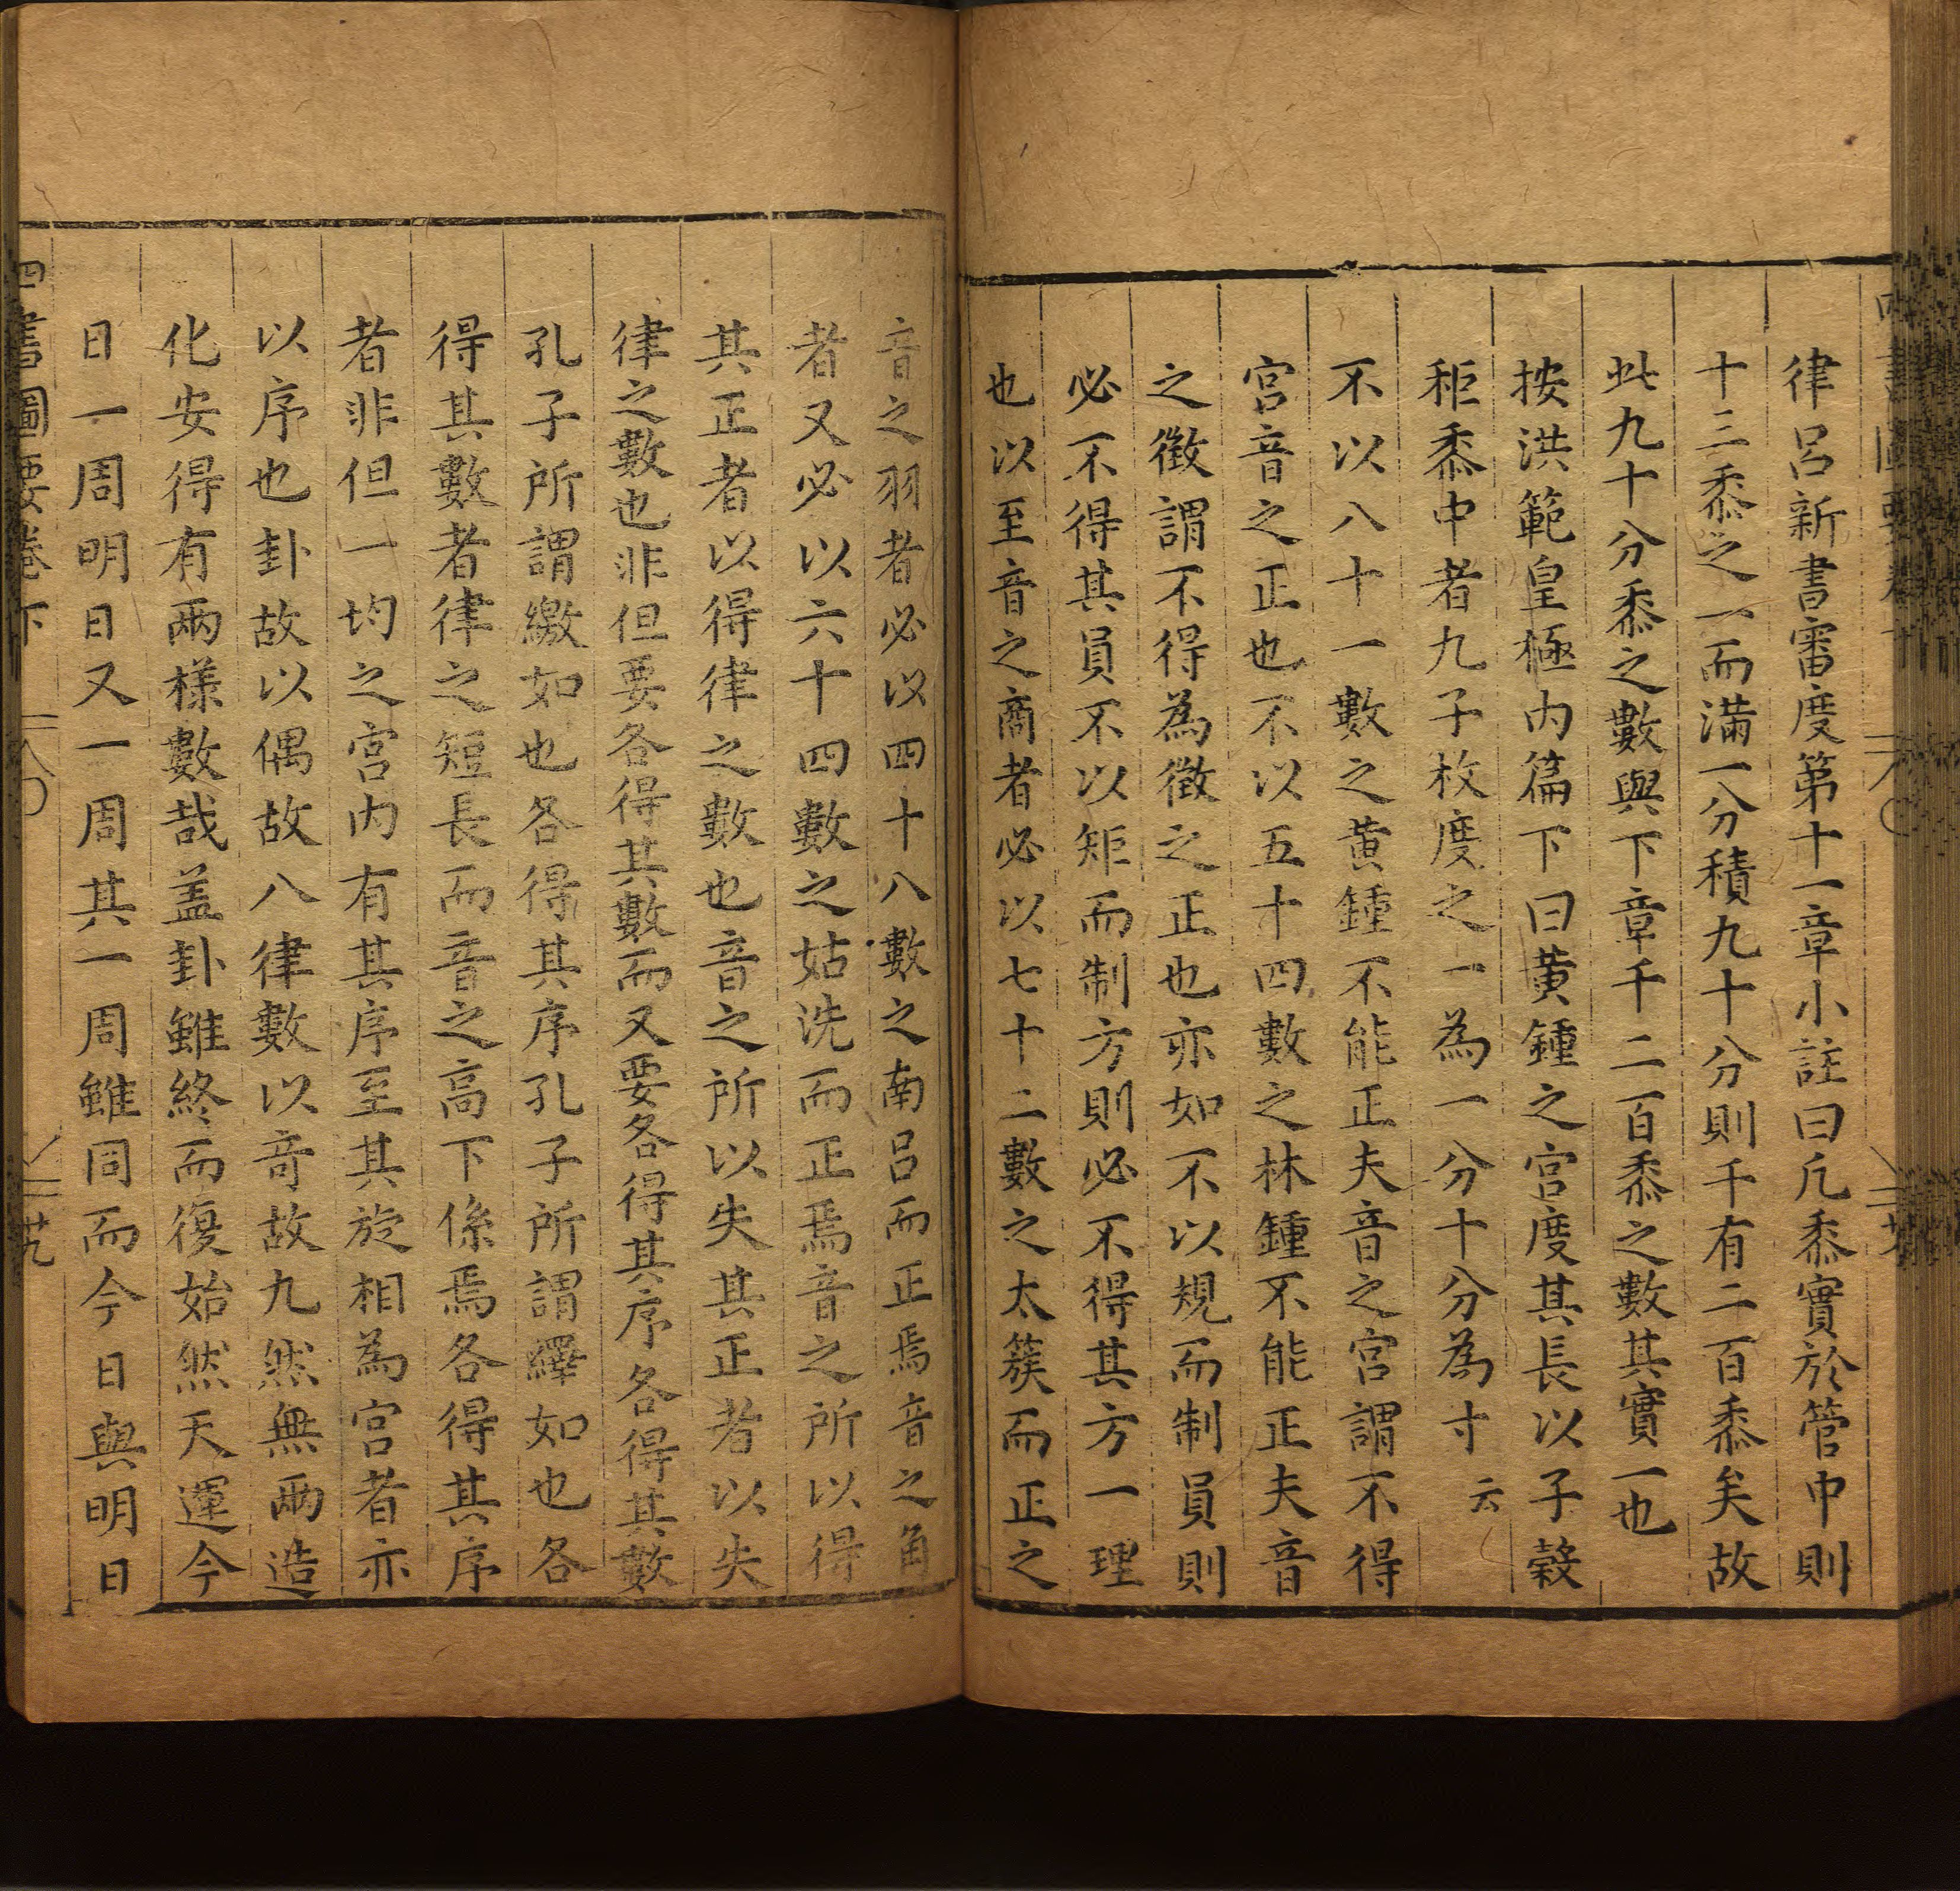 律呂新書審度第十一章小註曰凡黍實於管中則
十三黍之一而滿一分積九十分則千有二百黍矣故
此九十分黍之數與下章千二百黍之數其實一也
按洪範皇極内篇下曰黄鍾之宮度其長以子穀
秬黍中者九子枚度之一為一分十分為寸云
不以八十一數之黄鍾不能正夫音之宮謂不得
宮音之正也不以五十四數之林鍾不能正夫音
之徵謂不得為徵之正也亦如不以規而制員則
必不得其員不以矩而制方則必不得其方一理
也以至音之商者必以七十二數之太簇而正之
音之羽者必以四十八數之南呂而正焉音之角
者又必以六十四數之姑洗而正焉音之所以得
其正者以得律之數也音之所以失其正者以失
律之數也非但要各得其數而又要各得其序各得其數
孔子所謂繳如也各得其序孔子所謂繹如也各
得其數者律之短長而音之高下係焉各得其序
者非但一均之宮内有其序至其旋相為宮者亦
以序也卦故以偶故八律數以奇故九然無兩造
化安得有兩樣數哉盖卦雖終而復始然天運今
日一周明日又一周其一周雖同而今日與明日
四書圖要卷下 廿九